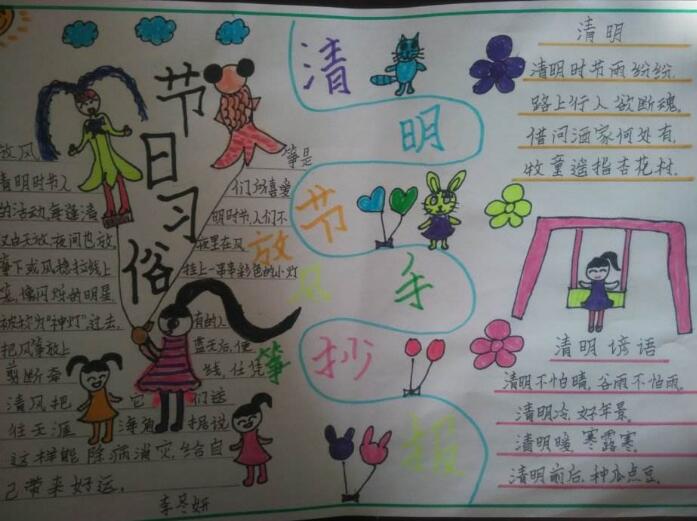 节日习俗
放风
筝是
清明时节人
们的喜爱
的活动,每逢清
明时节,人们不
又白天放,夜间也放,
夜里在风
筝下或风稳拉线上
挂上一串串彩色的小灯
笼,像闪烁的明星,
被称为“神灯”过去,
有的人
把风筝放上
蓝天后,便
剪断牵
线,任凭
清风把
它们送
往天涯
海角,据说
这样能除病消灾,给自
己带来好运。
李冬妍
清明节手抄报
放风筝
清明
清明时节雨纷纷,
路上行人欲断魂,
借问酒家何处有,
牧童遥指杏花村.
清明谚语
清明不怕晴,谷雨不怕雨.
清明冷,好年景.
清明暖,寒露寒.
清明前后,种瓜点豆.